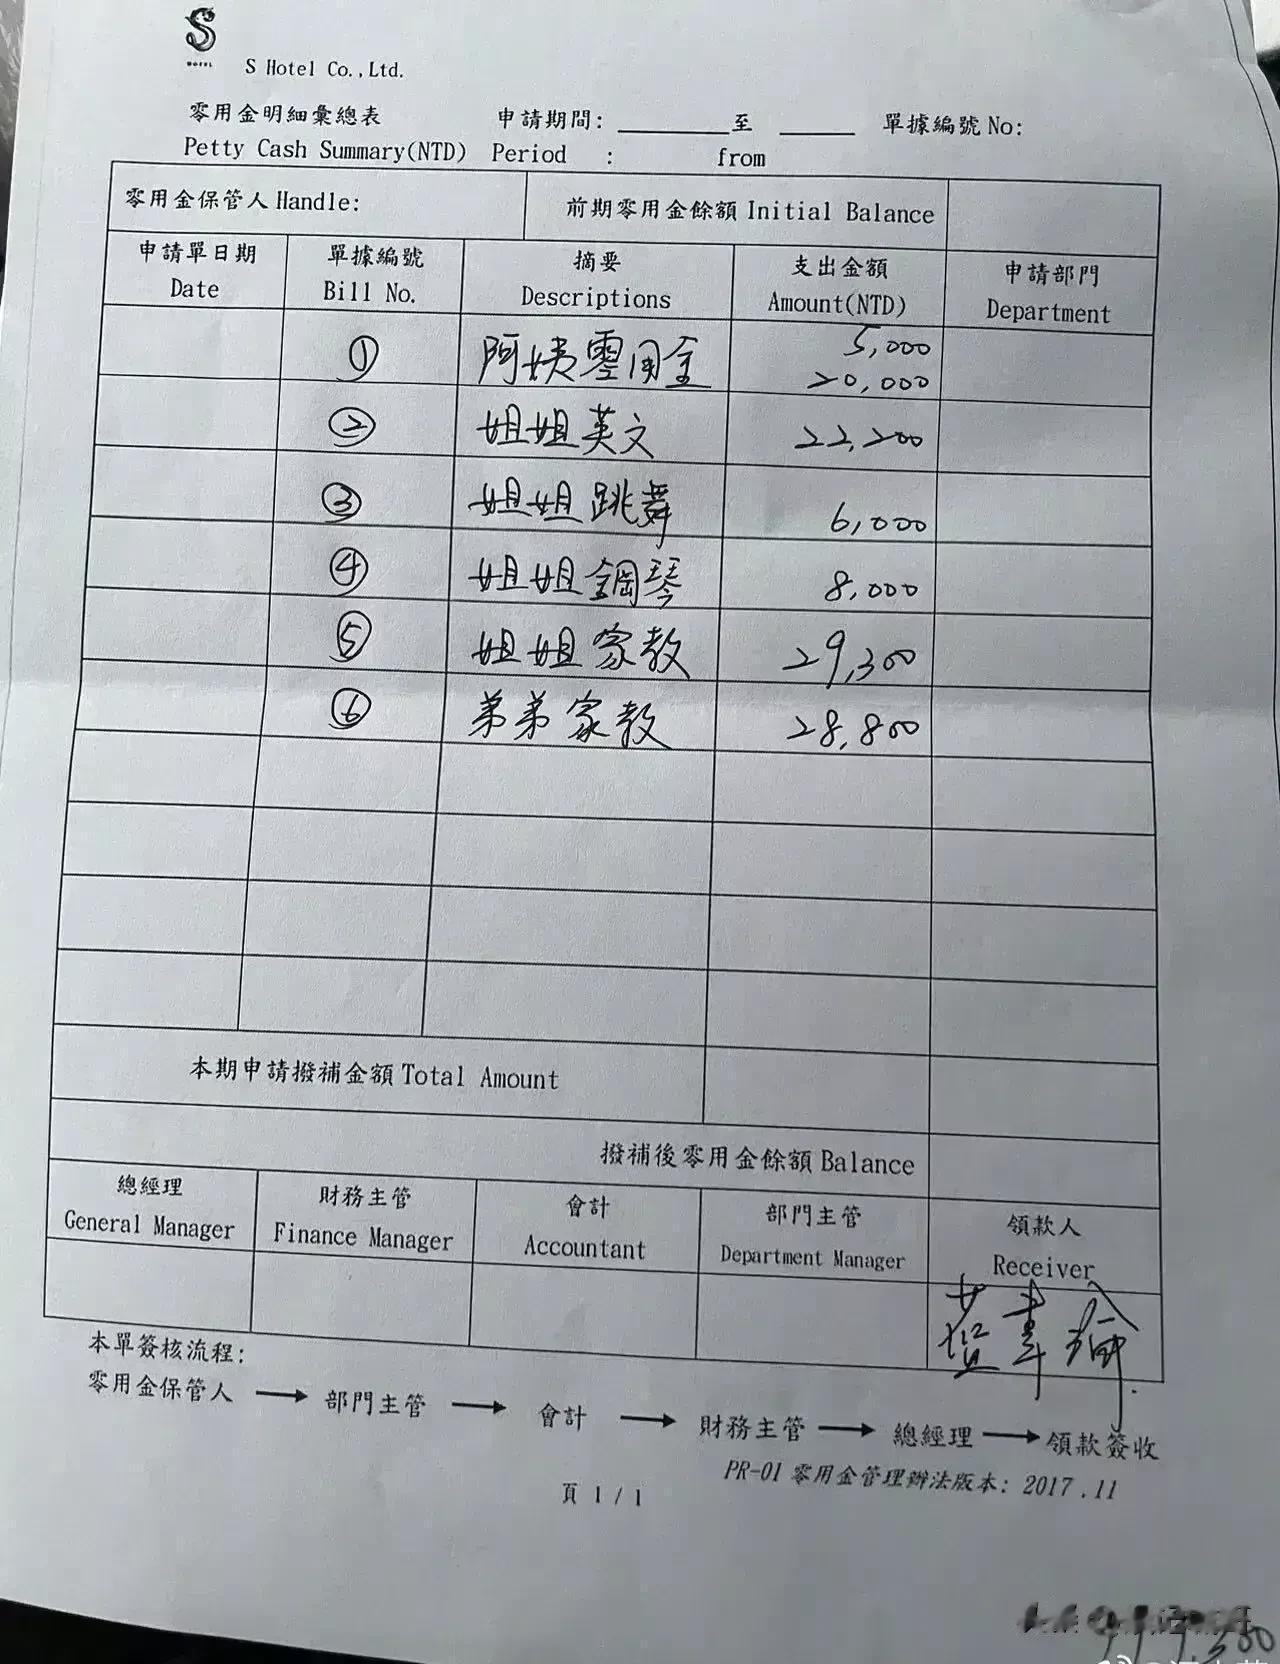 S
HOTEL
S Hotel Co.,Ltd.
零用金明細彙總表 申請期間: 至 單據編號 No:
Petty Cash Summary(NTD) Period : from
零用金保管人 Handle: 前期零用金餘額 Initial Balance
申請單日期 單據編號 摘要 支出金額 申請部門
Date Bill No. Descriptions Amount(NTD) Department
① 阿姨零用金 5,000
20,000
② 姐姐英文 22,200
③ 姐姐跳舞 6,000
④ 姐姐鋼琴 8,000
⑤ 姐姐家教 29,300
⑥ 弟弟家教 28,800
本期申請撥補金額 Total Amount
撥補後零用金餘額 Balance
總經理 財務主管 會計 部門主管 領款人
General Manager Finance Manager Accountant Department Manager Receiver
本單簽核流程:
零用金保管人 → 部門主管 → 會計 → 財務主管 → 總經理 → 領款簽收
PR-01 零用金管理辦法版本: 2017 .11
頁 1 / 1